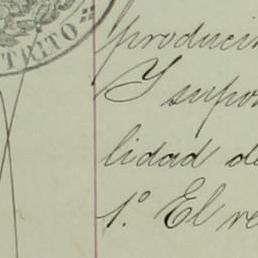 TRITO
producin
Y supon
lidad de
1.º El re